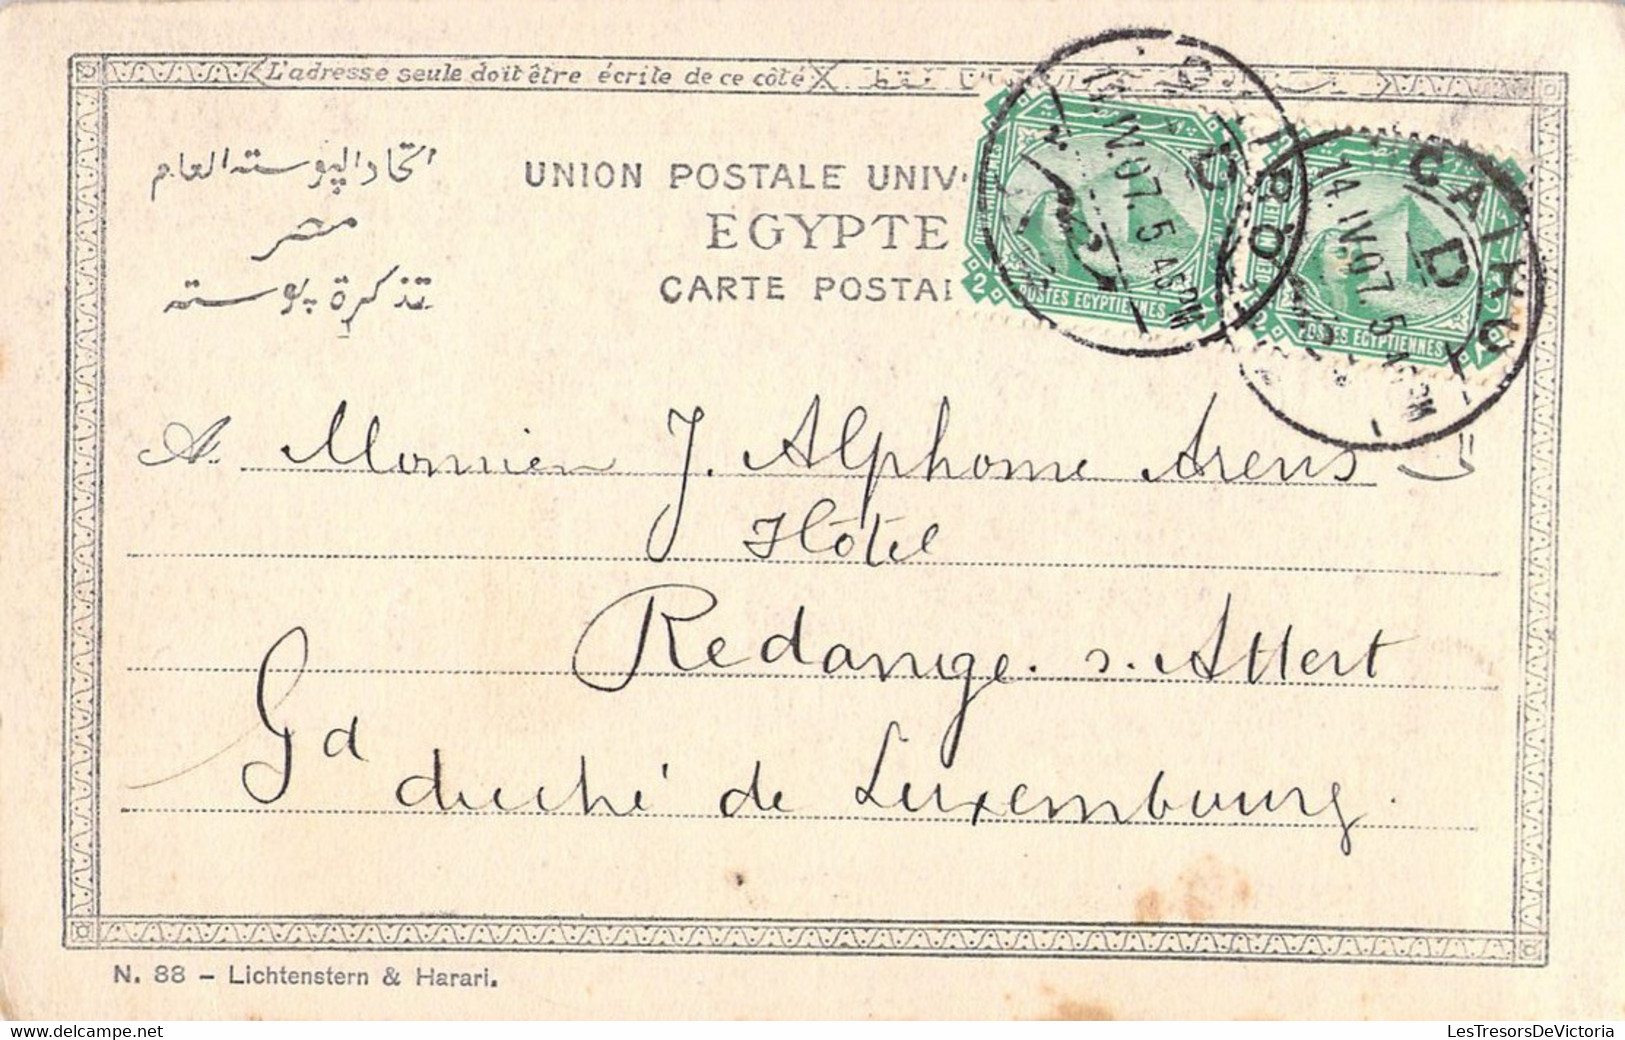 L'adresse seule doit être écrite de ce côté
اتحاد البوسته العام
UNION POSTALE UNIV
مصر
EGYPTE
تذكرة بوسته
CARTE POSTAL
POSTES EGYPTIENNES
2
POSTES EGYPTIENNES
2
CAIRO
D
14.IV.07. 5 40PM
CAIRO
D
14.IV.07. 5 40PM
A. Monsieur J. Alphonse Arens
Hôtel
Redange. s. Attert
Gd duché de Luxembourg.
N. 88 – Lichtenstern & Harari.
LesTresorsDeVictoria